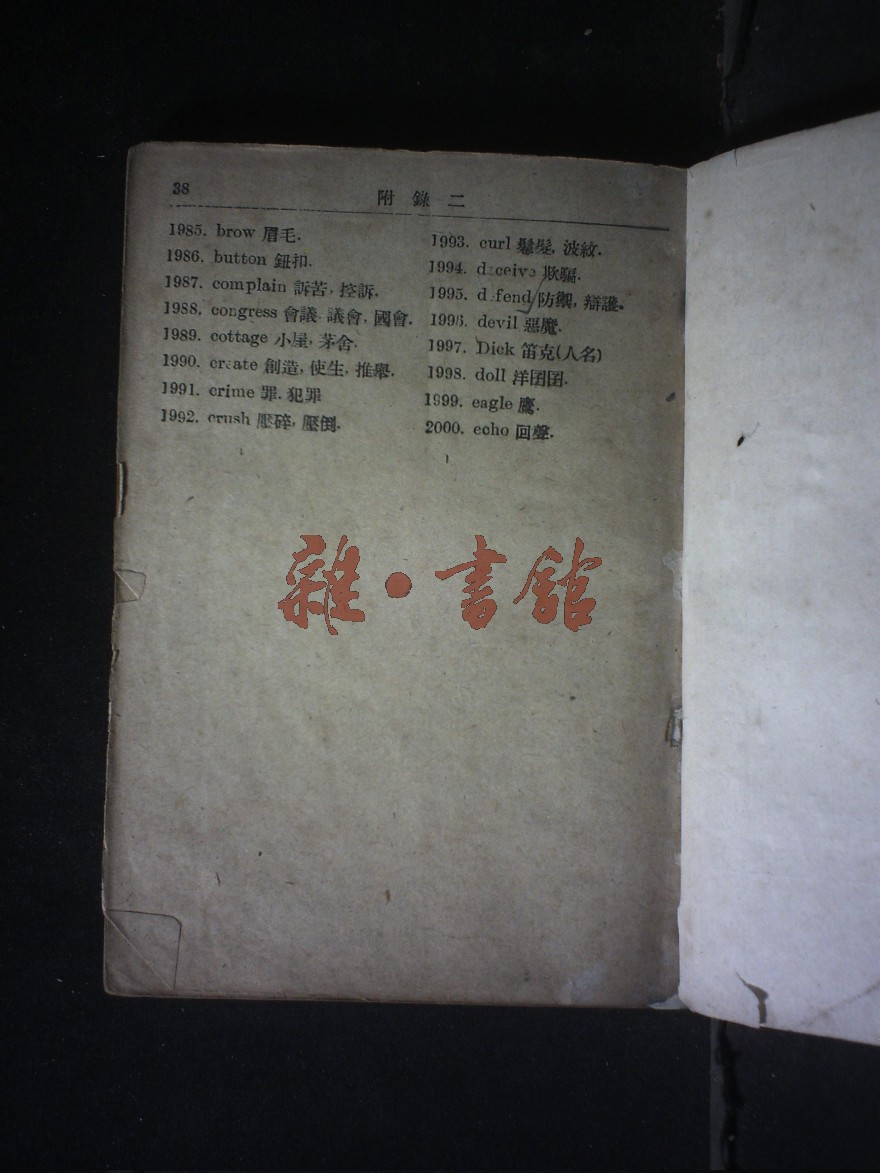 38
附錄二
1985. brow 眉毛.
1986. button 鈕扣.
1987. complain 訴苦, 控訴.
1988. congress 會議, 議會, 國會.
1989. cottage 小屋, 茅舍.
1990. create 創造, 使生, 推舉.
1991. crime 罪, 犯罪
1992. crush 壓碎, 壓倒.
1993. curl 鬈髮, 波紋.
1994. deceive 欺騙.
1995. defend 防禦, 辯護.
1996. devil 惡魔.
1997. Dick 笛克(人名)
1998. doll 洋囝囝.
1999. eagle 鷹.
2000. echo 回聲.
雜·書館